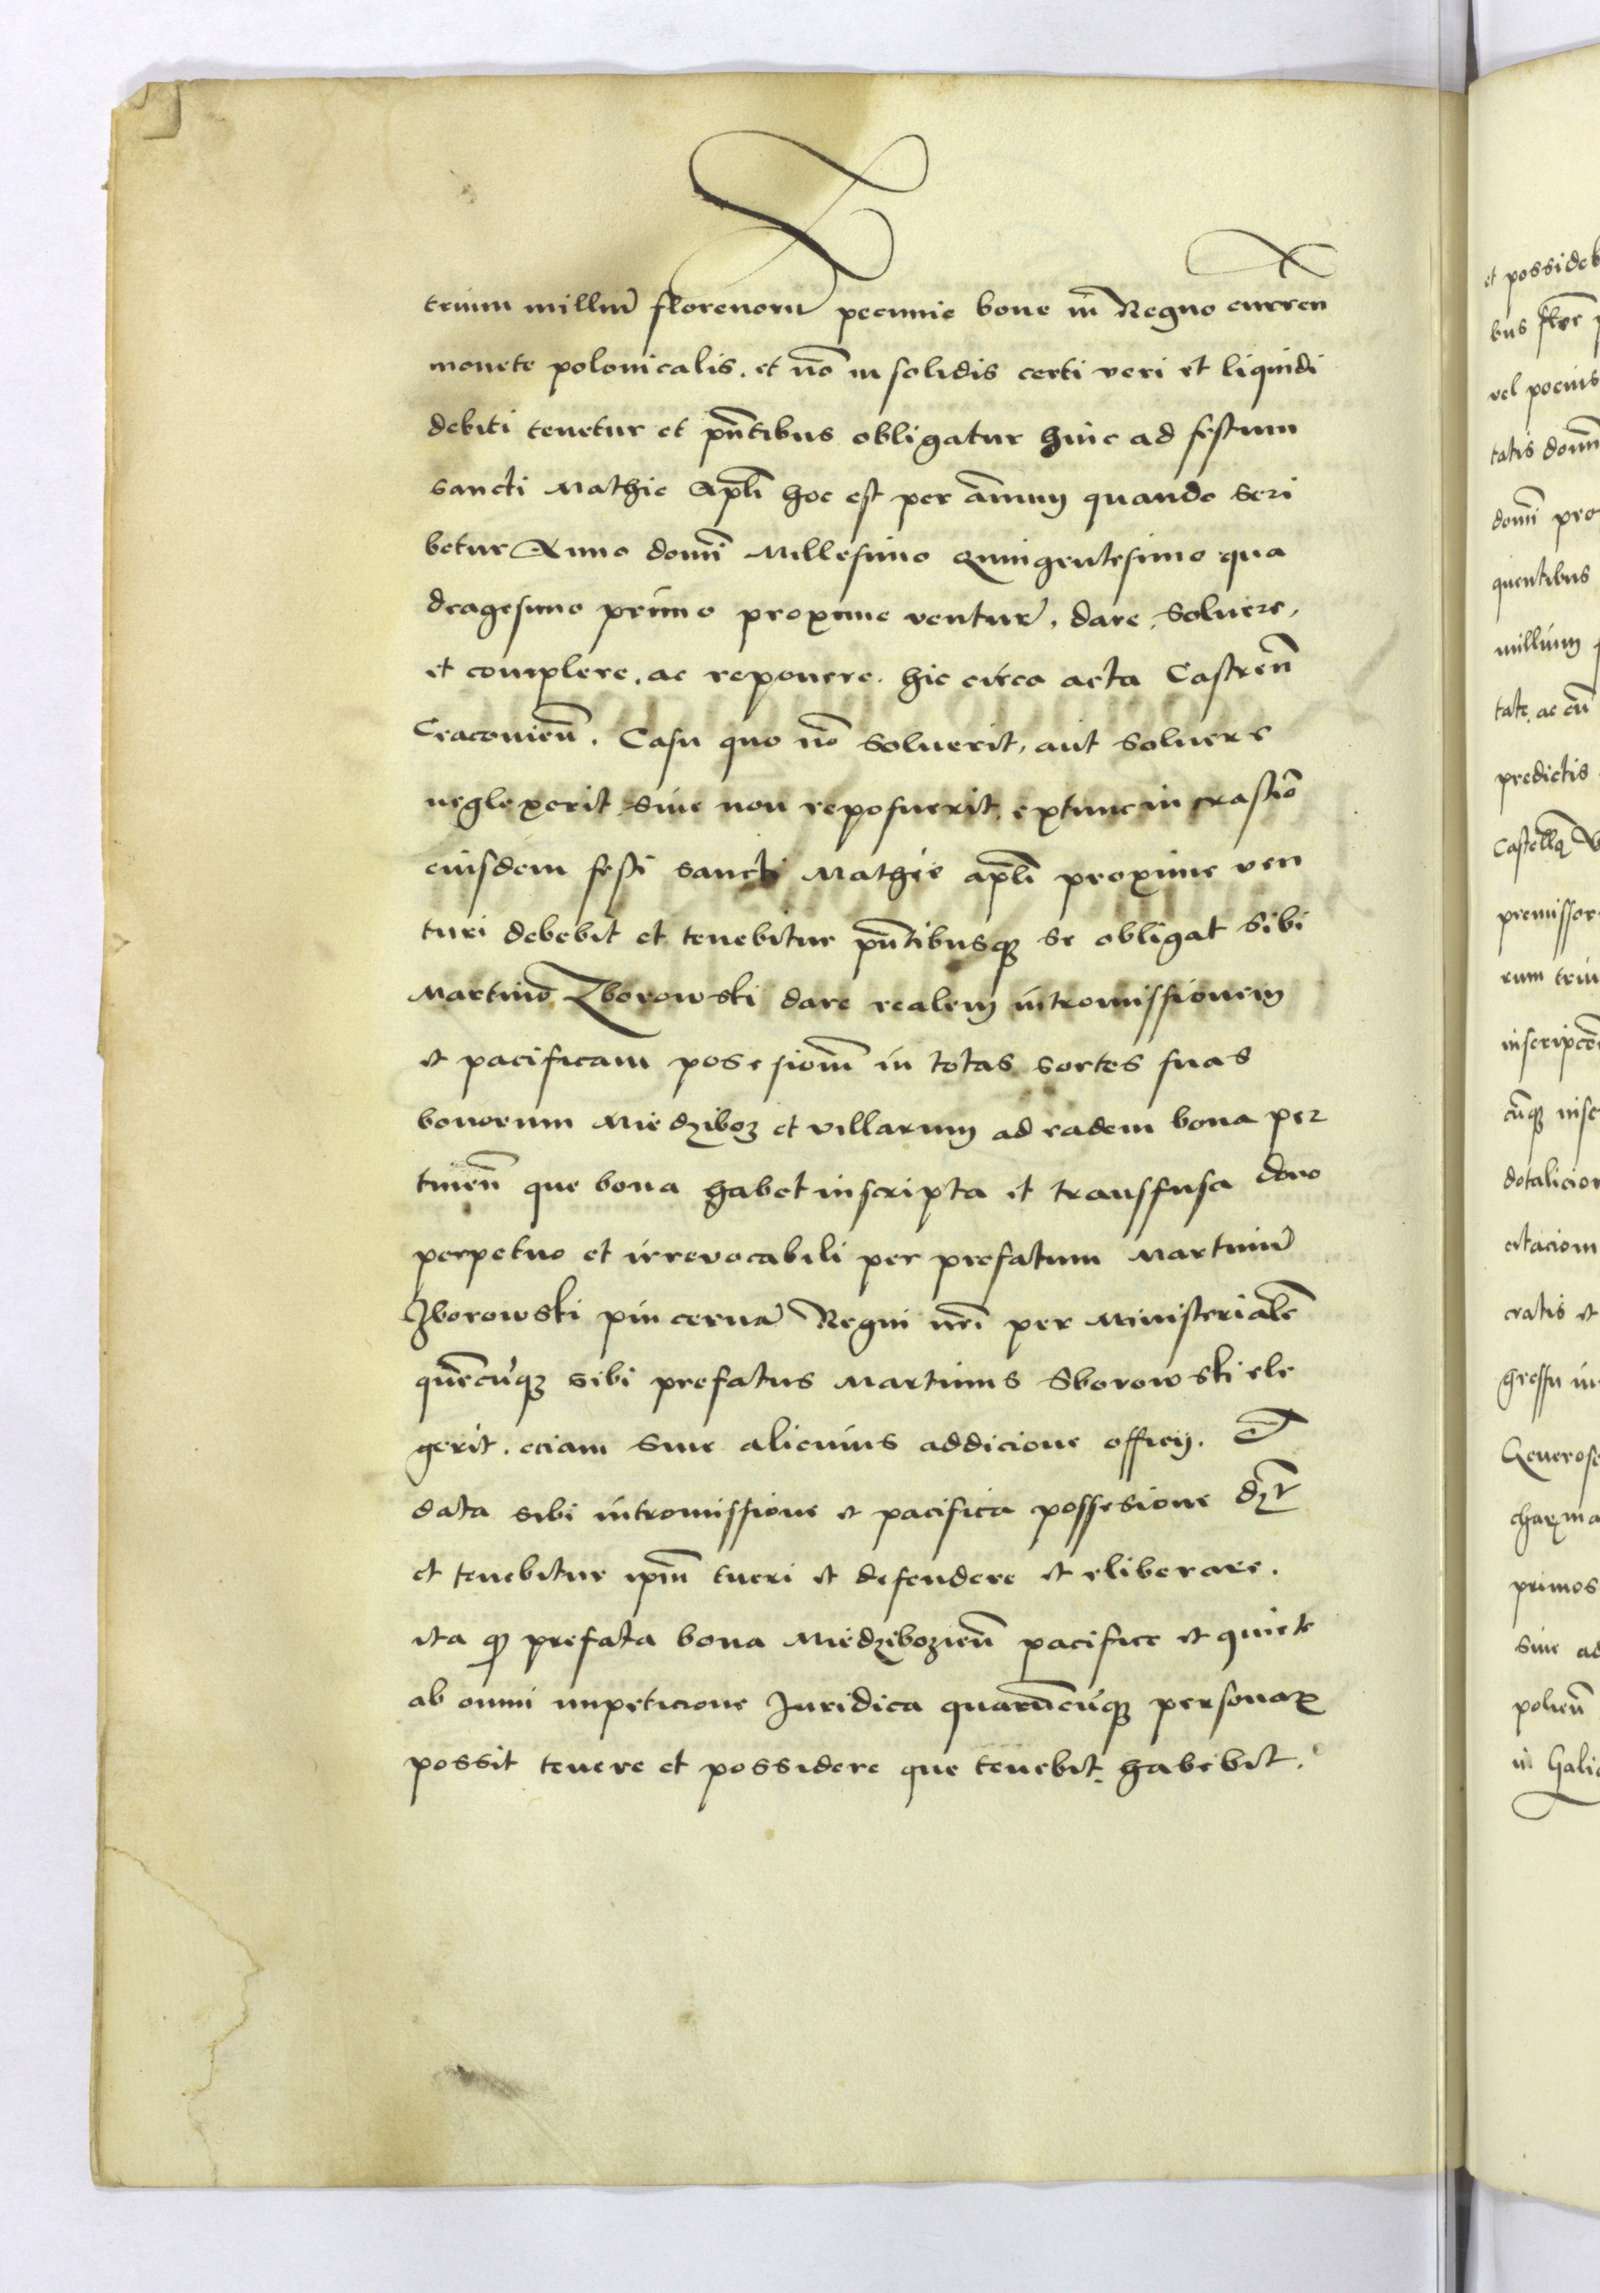 trium milliu͂ florenoru͂ pecunie bone in Regno curren
monete polonicalis. et no͂ in solidis certi veri et liquidi
debiti tenetur et pn͂tibus obligatur hinc ad festum
sancti Mathie Apl͂i hoc est per annum quando scri
betur Anno domi͂ Millesimo Quingentesimo qua
dragesimo primo proxime ventur͂. dare. soluere.
et complere. ac reponere. hic circa acta Castren͂
Cracouien͂. Casu quo no͂ soluerit, aut soluere
neglexerit siue non reposuerit. extunc in crastio͂
eiusdem festi sancti Mathie apl͂i proxime ven
turi debebit et tenebitur pn͂tibusq3 se obligat sibi
Martino Zborowski dare realem intromissionem
et pacificam posesiom͂ in totas sortes suas
bonorum Miedziboz et villarum ad eadem bona per
tinen͂ que bona habet inscripta et transfusa dono
perpetuo et irreuocabili per prefatum Martinu͂
Zborowski pincerna͂ Regni nr͂i per Ministeriale͂
que͂cu͂q3 sibi prefatus Martinus Sborowski ele
gerit. eciam sine alicuius addicione officij. Et
data sibi intromissione et pacifica possesione dz͂t
et tenebitur ipm͂ tueri et defendere et eliberare.
ita q3 prefata bona Miedzibozien͂ pacifice et quiete
ab omni impeticione Juridica quaru͂cu͂q3 personaꝝ
possit tenere et possidere que tenebit. habebit.
et possideb
bus flor
vel pocius
tatis domi͂
domi͂ pro
quentibus
millium
tate. ac cu͂
predictis
premissor
rum triu
inscripco͂
cu͂q3 insc
dotalicior
citaciom
cratis et
gressu in
Generose
primos
siue ad
polien͂
in Hali